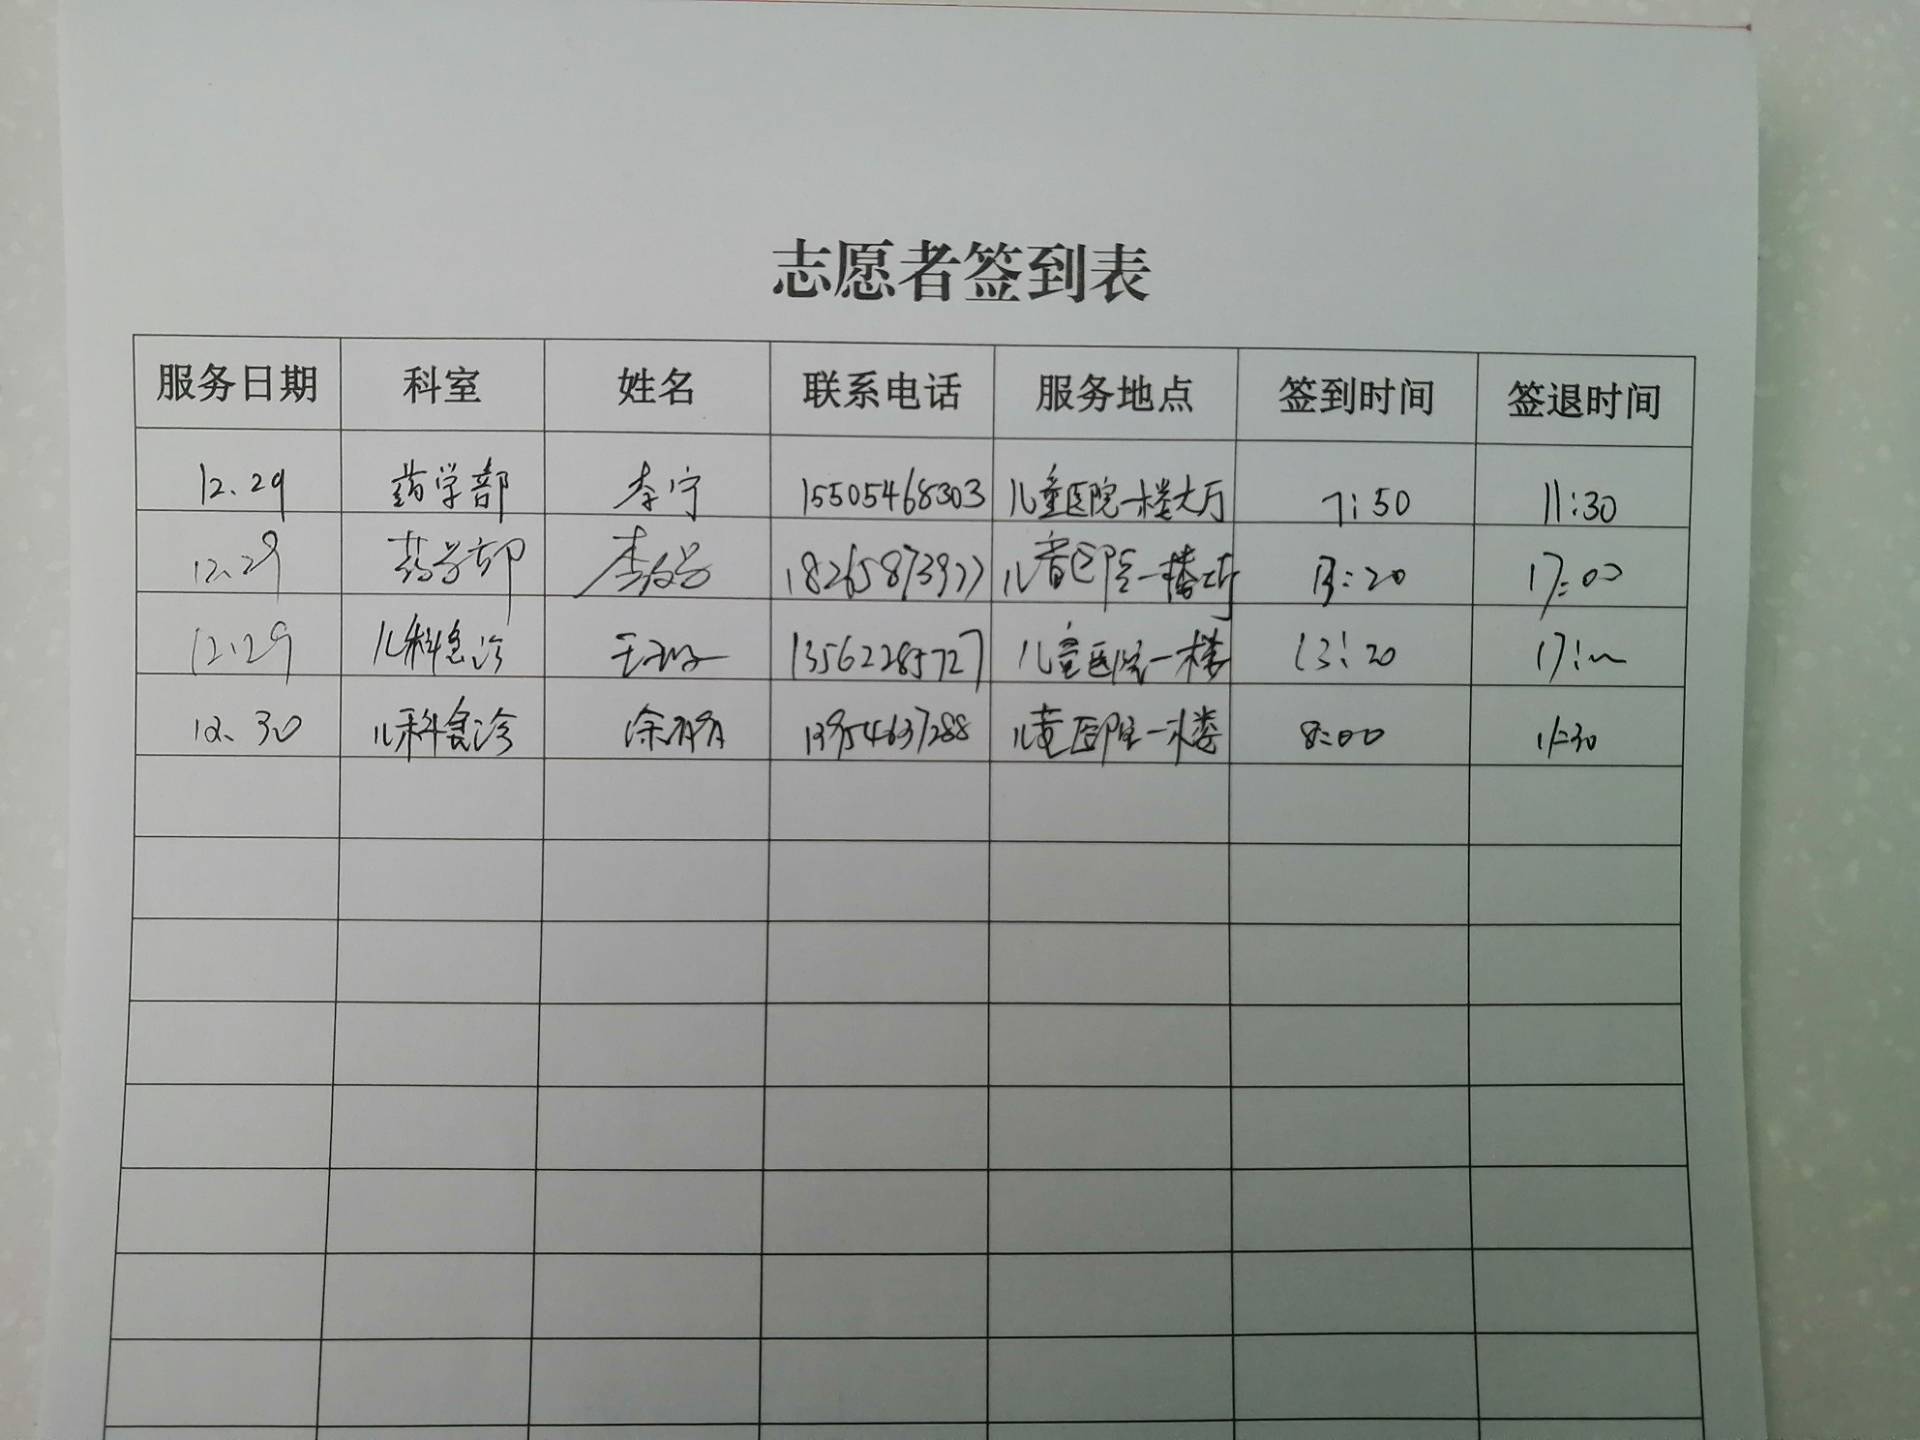 志愿者签到表
服务日期 科室 姓名 联系电话 服务地点 签到时间 签退时间
12.29 药学部 李宁 15505468303 儿童医院一楼大厅 7:50 11:30
12.29 药学部 18265873977 儿童医院一楼大厅 13:20 17:00
12.29 儿科急诊 13562285727 儿童医院一楼 13:20 17:00
12.30 儿科急诊 13954637288 儿童医院一楼 8:00 11:30